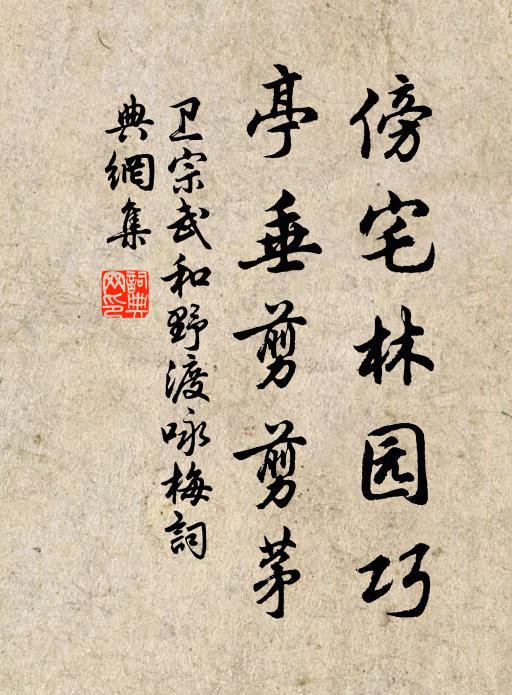 傍宅林园巧
亭垂剪剪茅
卫宗武和野渡咏梅詞
典網集
詞典
网印